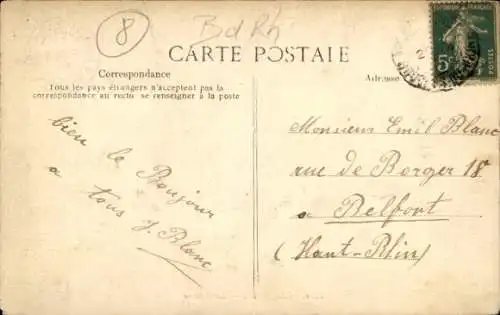 8
B d Rh
CARTE POSTALE
Correspondance
Tous les pays étrangers n'acceptent pas la
correspondance au recto se renseigner à la poste
Adresse
bien le Boujour
a tous J. Blanc
Monsieur Emil Blanc
rue de Borger 18
a Belfort
(Haut-Rhin)
5c